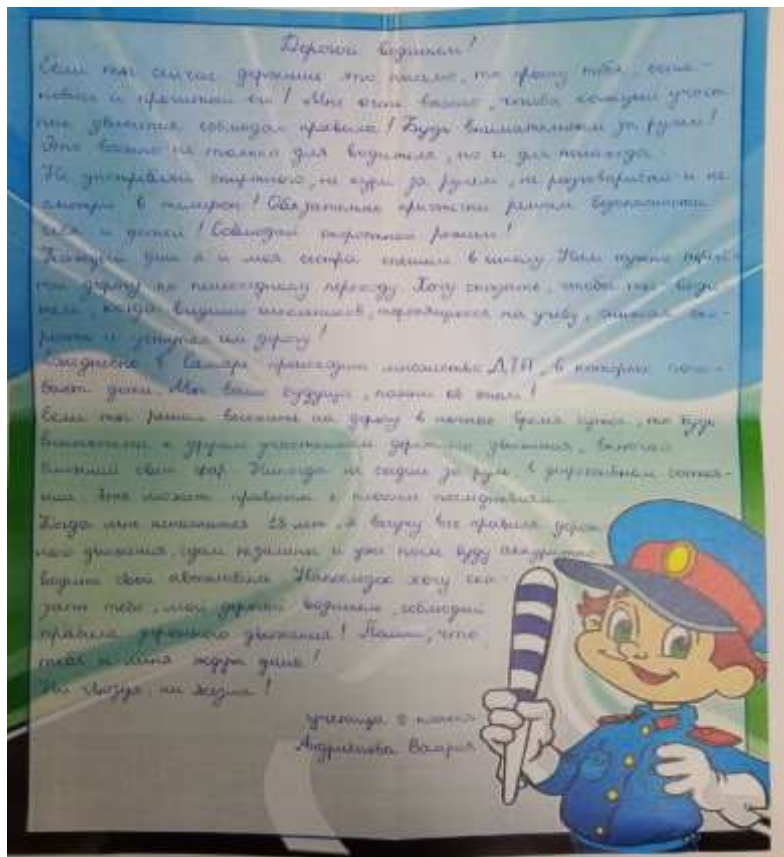 Дорогой водитель!
Если ты сейчас держишь это письмо, то прошу тебя, оста-
новись и прочитай его! Мне очень важно, чтобы каждый участ
ник движения соблюдал правила! Будь внимательным за рулём!
Это важно не только для водителя, но и для пешехода.
Не употребляй спиртного, не кури за рулём, не разговаривай и не
смотри в телефон! Обязательно пристегни ремнём безопасности
себя и детей! Соблюдай скоростной режим!
Каждый день я и моя сестра спешим в школу. Нам нужно перей-
ти дорогу по пешеходному переходу. Хочу сказать, чтобы ты води-
тель, когда видишь школьников, торопящихся на учёбу, снижал ско-
рость и уступал им дорогу!
Ежедневно в Самаре происходит множество ДТП, в которых поги-
бают дети. Мы ваше будущее, помни об этом!
Если ты решил выехать на дорогу в ночное время суток, то будь
внимателен к другим участникам дорожного движения, включай
ближний свет фар. Никогда не садись за руль в состоя-
нии. Это может привести к плохим последствиям.
Когда мне исполнится 18 лет, я выучу все правила дорож
ного движения, сдам экзамены и уже потом буду аккуратно
водить свой автомобиль. Напоследок хочу ска-
зать тебе, мой дорогой водитель, соблюдай
правила дорожного движения! Помни, что
тебя и меня ждут дома!
Ни гвоздя, ни жезла!
ученица класса
Андриянова Валерия